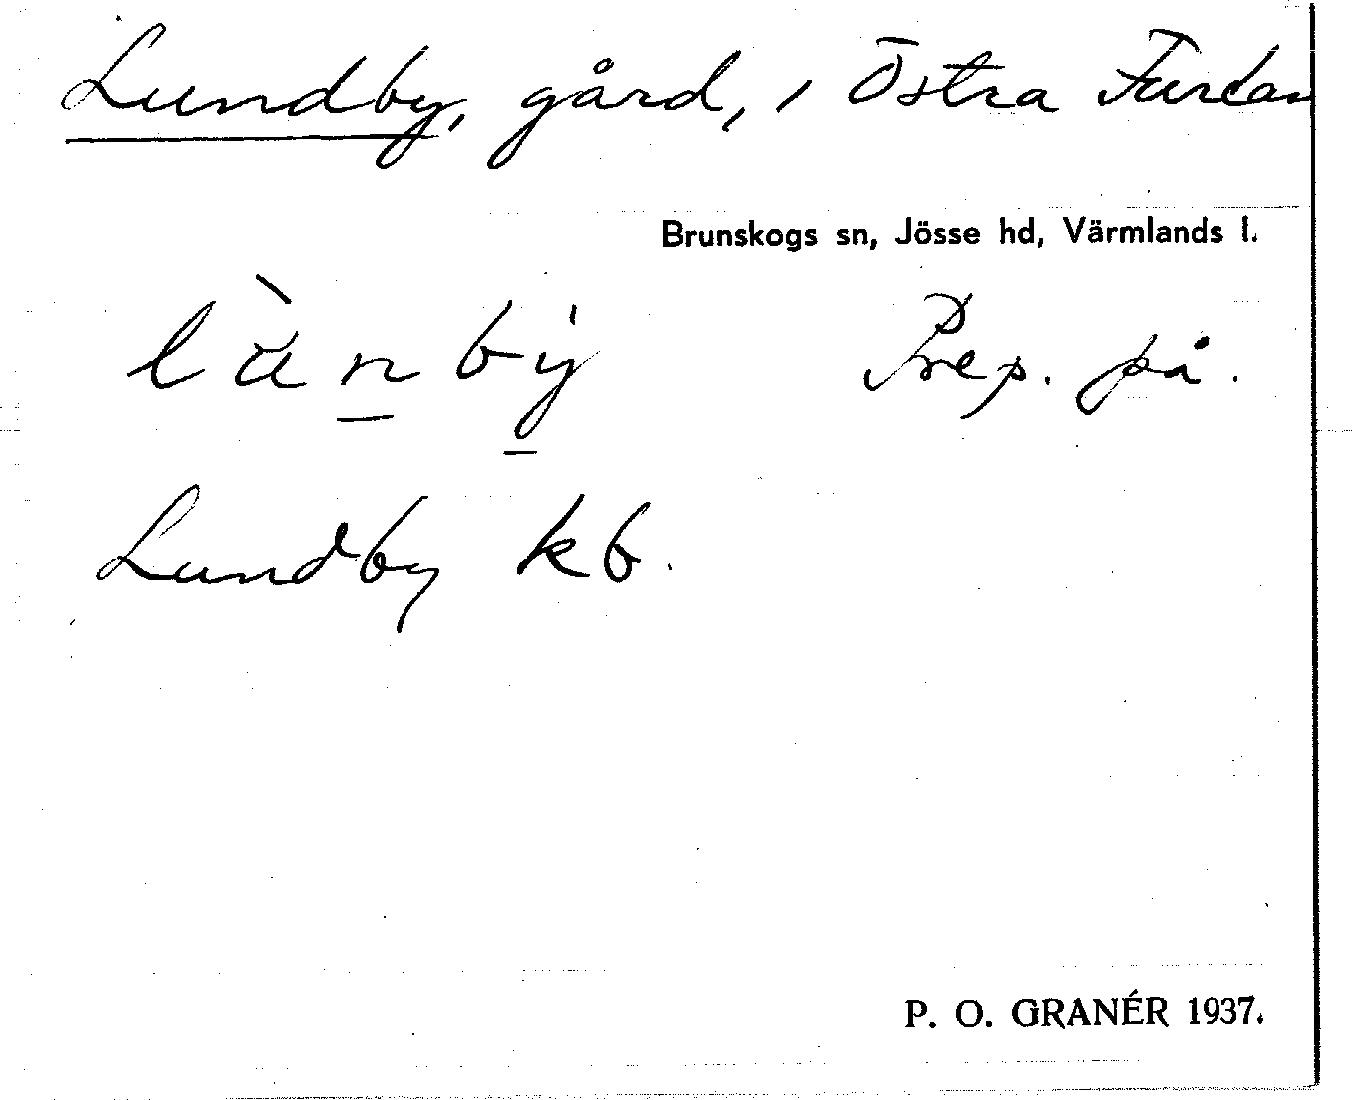 Lundby, gård, i Östra Furtan
Brunskogs sn, Jösse hd, Värmlands l.
lànby Prep. på.
Lundby kb.
P. O. GRANÉR 1937.